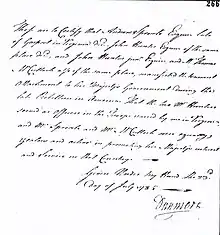 266
These are to Certify that Andrew Sprowle Esquire late
of Gosport in Virginia
place and John Hunter junr Esqr and Mr
McCulloch also of the same place, manifested the warmest
Attachment to his Majestys Government during the
late Rebellion in America. That the
served as officers in the Troops raised by me in Virginia
and Mr Sprowle and Mr McCulloch were equally
zealous and active in promoting his Majestys interest
and Service in that Country.
Given Under my Hand
Day of July 178
Dunmore